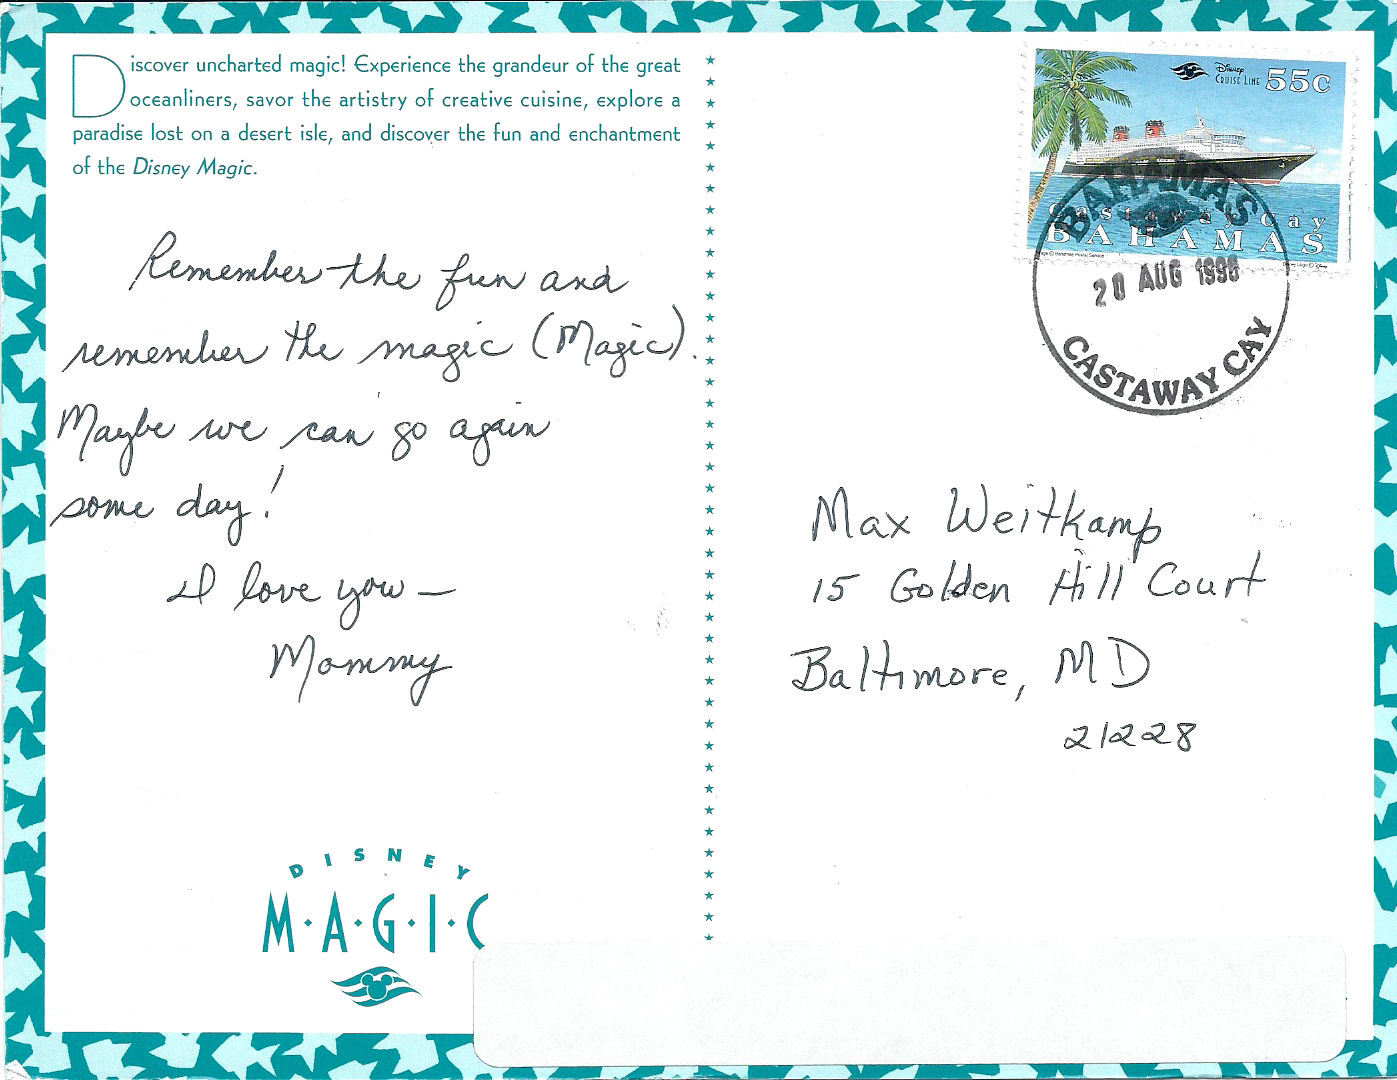 Discover uncharted magic! Experience the grandeur of the great
oceanliners, savor the artistry of creative cuisine, explore a
paradise lost on a desert isle, and discover the fun and enchantment
of the Disney Magic.
Remember the fun and
remember the magic (Magic).
Maybe we can go again
some day!
I love you —
Mommy
DISNEY
M·A·G·I·C
Disney
CRUISE LINE
55c
Castaway Cay
BAHAMAS
BAHAMAS
20 AUG 1998
CASTAWAY CAY
Max Weitkamp
15 Golden Hill Court
Baltimore, MD
21228